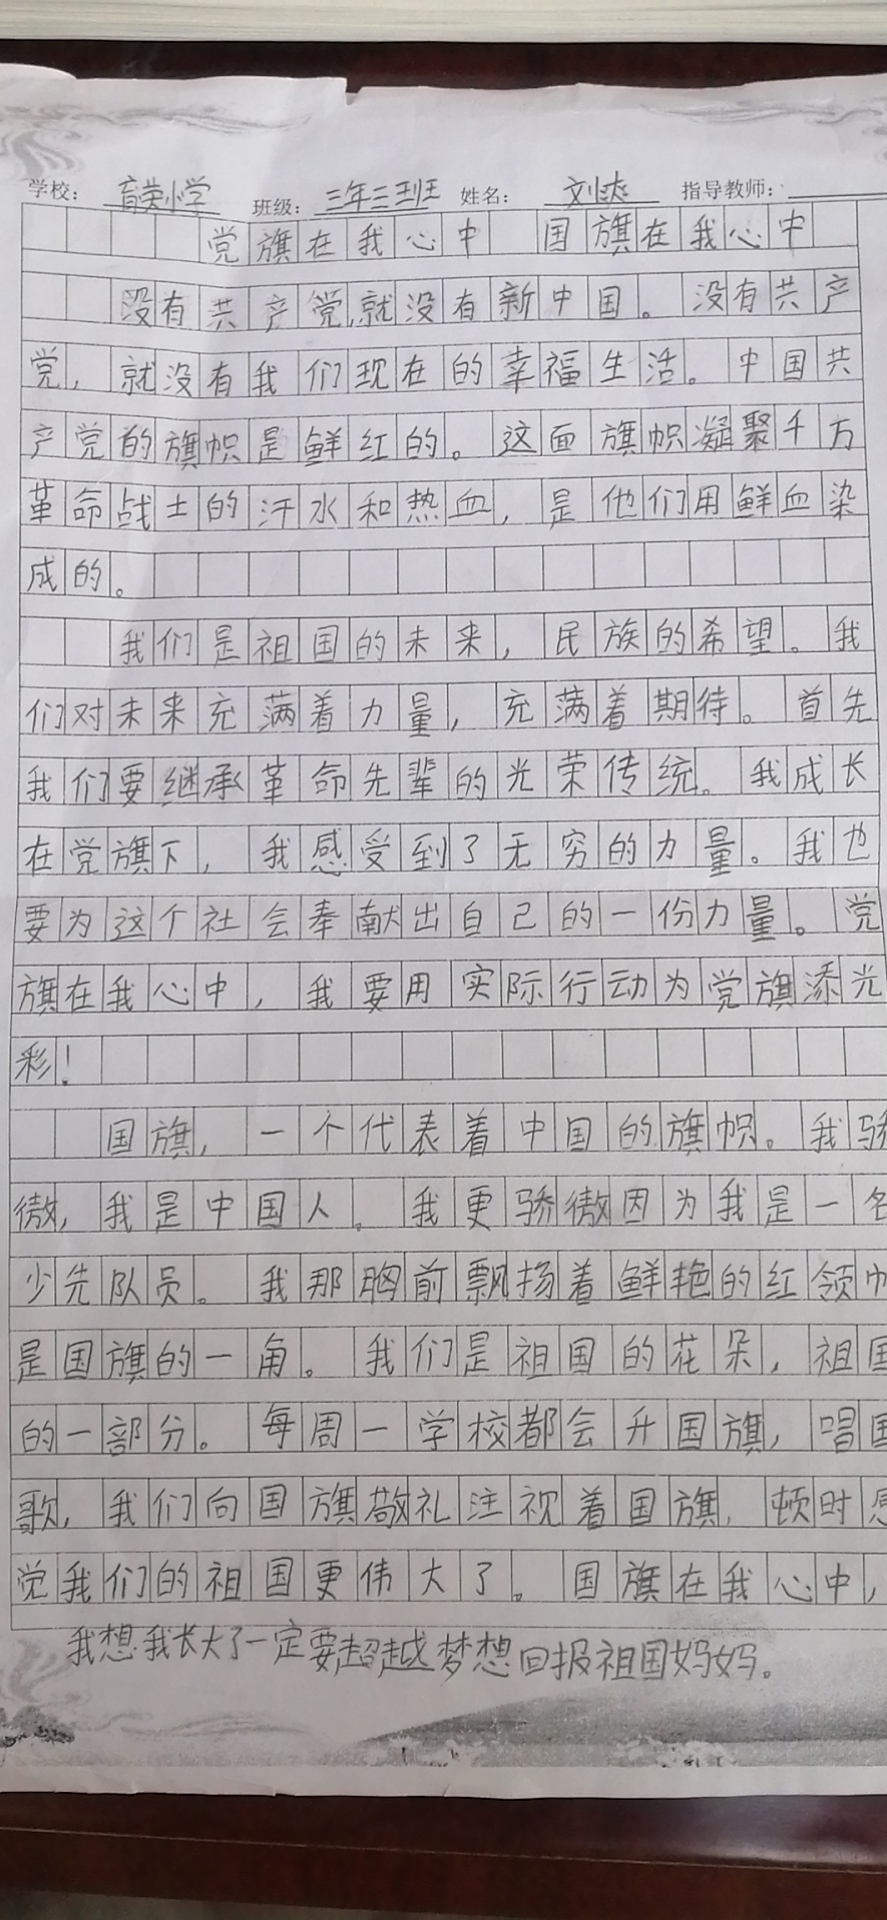 学校：育英小学 班级：三年三班 姓名：刘爽 指导教师：
党旗在我心中 国旗在我心中
没有共产党,就没有新中国。没有共产
党，就没有我们现在的幸福生活。中国共
产党的旗帜是鲜红的。这面旗帜凝聚千万
革命战士的汗水和热血，是他们用鲜血染
成的。
我们是祖国的未来，民族的希望。我
们对未来充满着力量，充满着期待。首先
我们要继承革命先辈的光荣传统。我成长
在党旗下，我感受到了无穷的力量。我也
要为这个社会奉献出自己的一份力量。党
旗在我心中，我要用实际行动为党旗添光
彩！
国旗，一个代表着中国的旗帜。我骄
傲，我是中国人。我更骄傲因为我是一名
少先队员。我那胸前飘扬着鲜艳的红领巾
是国旗的一角。我们是祖国的花朵，祖国
的一部分。每周一学校都会升国旗，唱国
歌，我们向国旗敬礼注视着国旗，顿时感
觉我们的祖国更伟大了。国旗在我心中，
我想我长大了一定要超越梦想回报祖国妈妈。